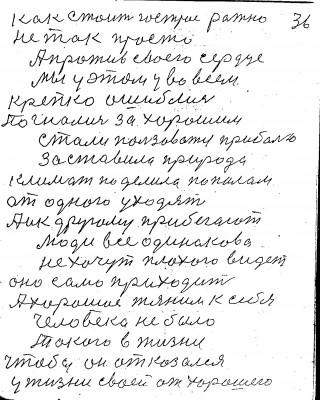 как стоит гострое ратно 36
не так просто
Апротив своего сердце
мы у этом у во всем
крепко ошиблись
Погнались за хорошим
стали ползовати прибалю
заставила природа
климат поделила пополам
от одного уходят
Аик другому прибегают
люди все одинакова
не хочут плохого видет
оно само приходит
Ахорошое тяним к себя
человека не было
такого в жизни
чтобы он отказался
у жизни своей от хорошего